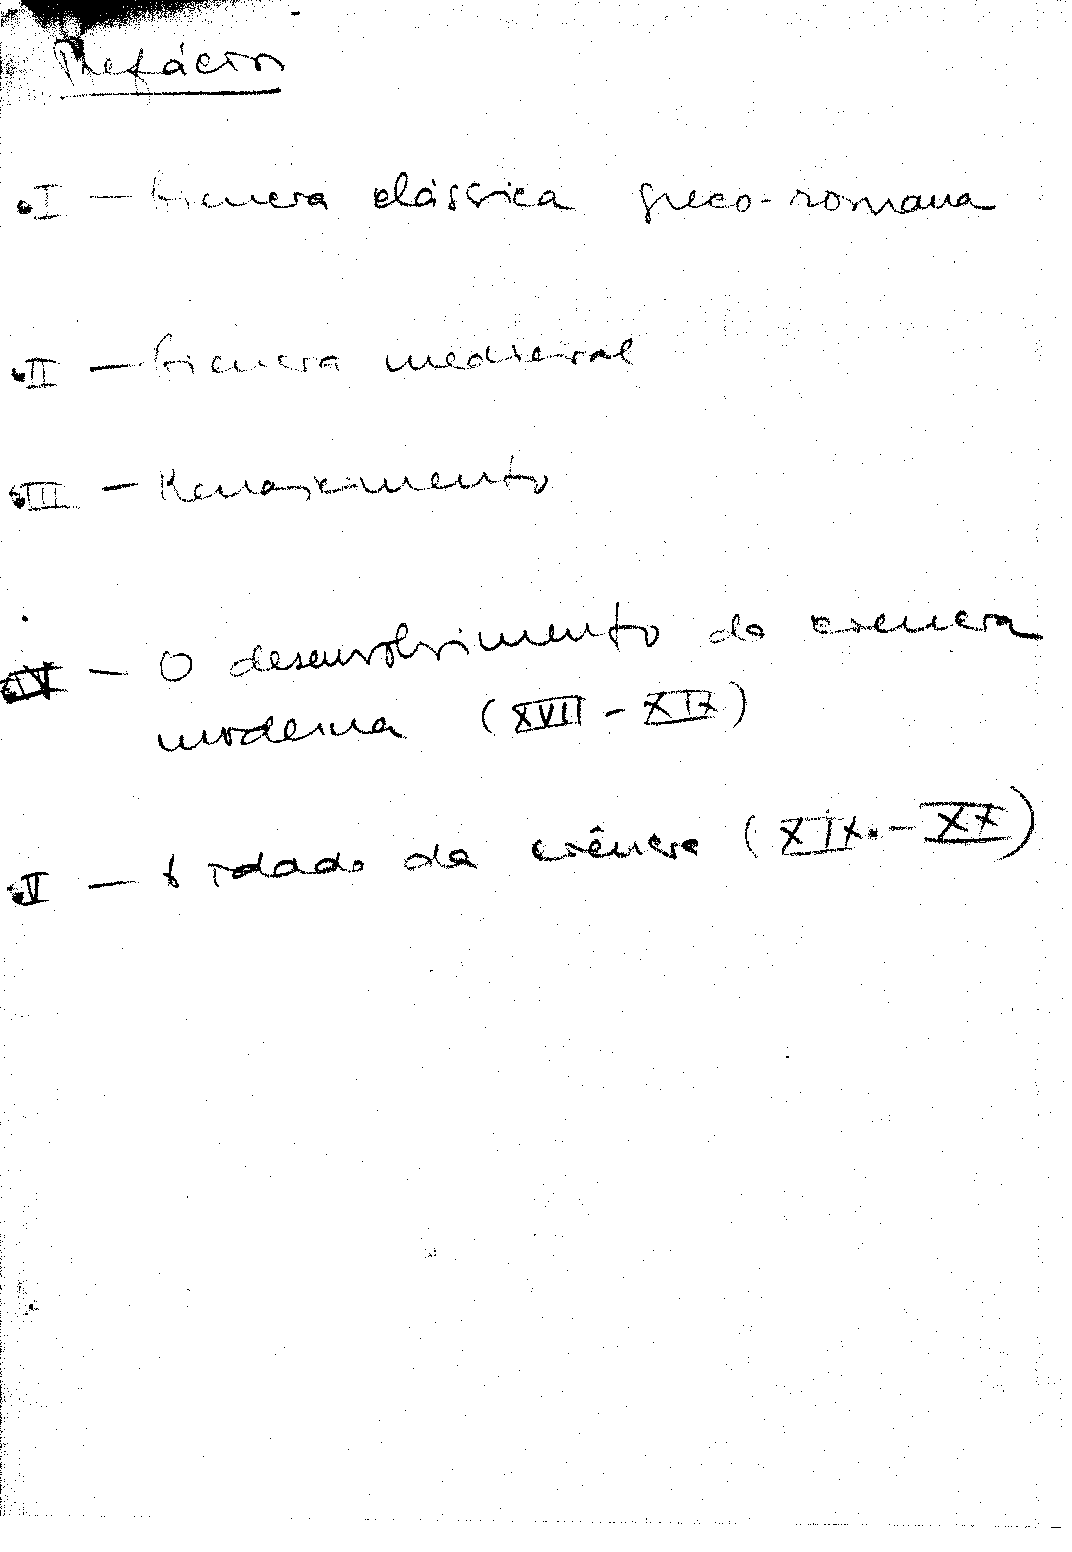 Prefácio
I — Ciência clássica greco-romana
II — Ciência medieval
III — Renascimento
IV — O desenvolvimento da ciência
moderna (XVII - XIX)
V — A idade da ciência (XIX. - XX)